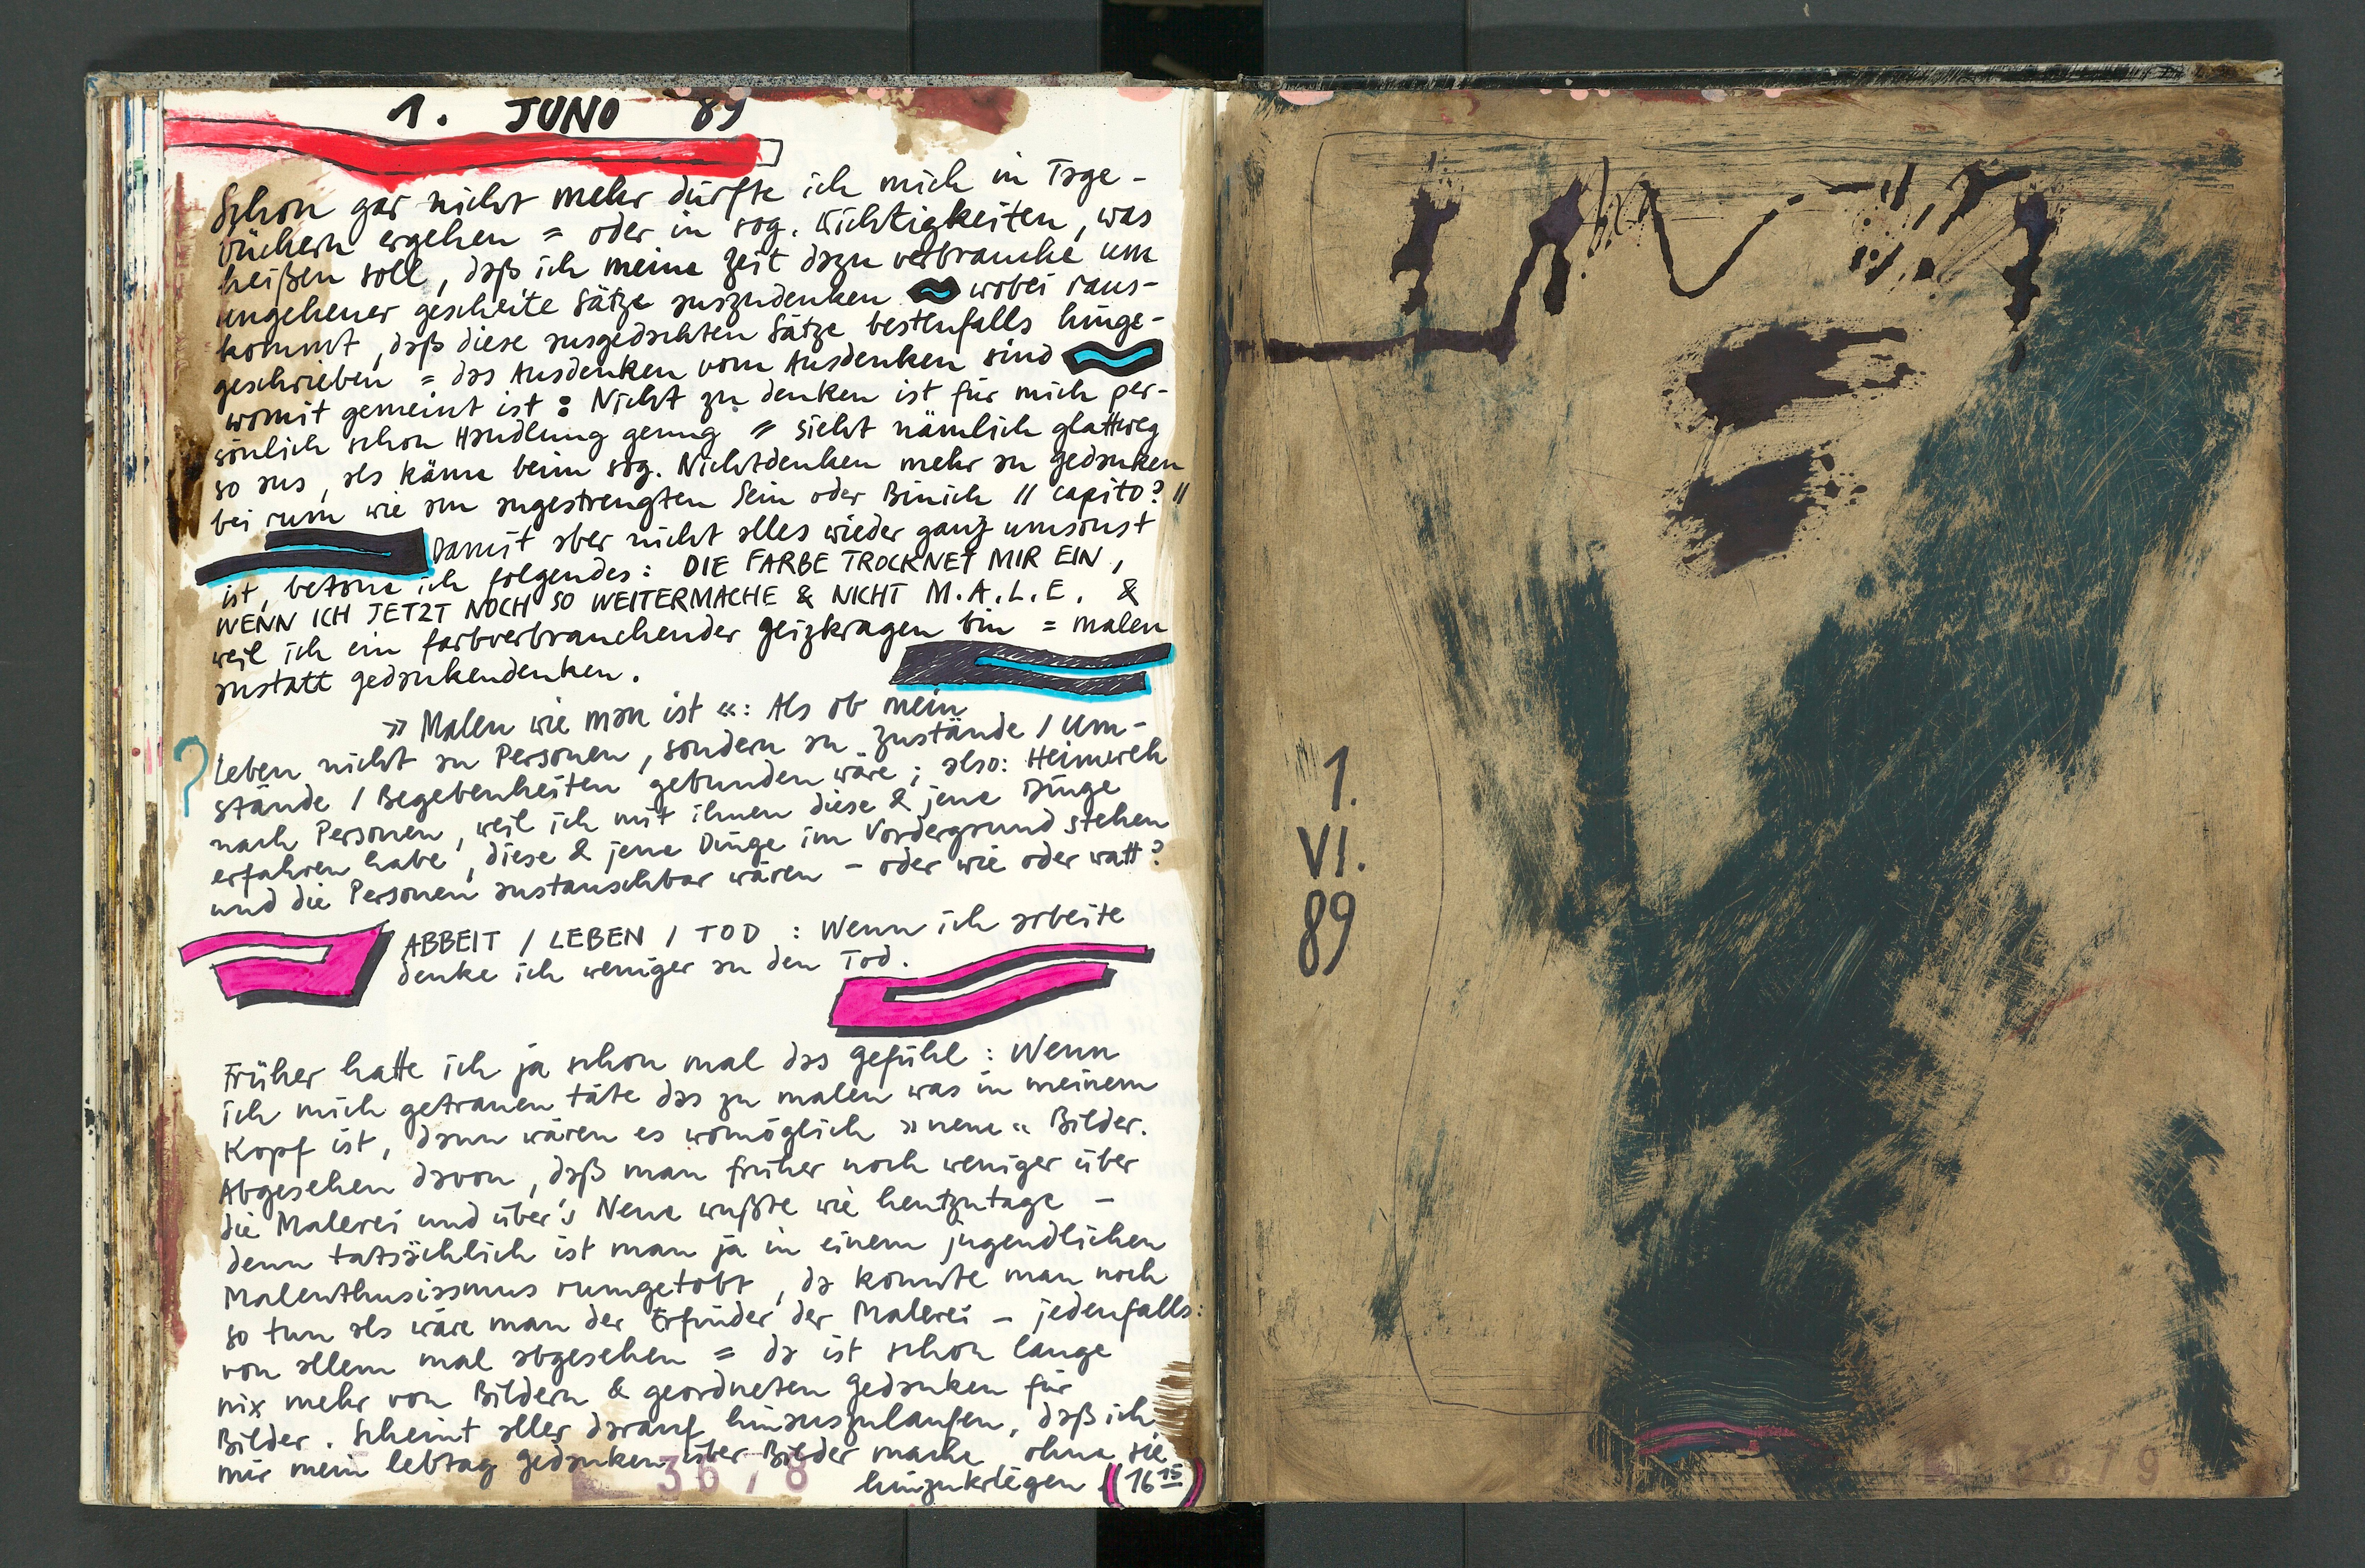 1. JUNO 89
Schon gar nicht mehr dürfte ich mich in Tage-
büchern ergehen = oder in sog. Wichtigkeiten, was
heißen soll, daß ich meine Zeit dazu verbrauche um
ungeheuer gescheite Sätze auszudenken wobei raus-
kommt, daß diese ausgedachten Sätze bestenfalls hinge-
geschrieben = das Ausdenken vom Ausdenken sind
womit gemeint ist: Nicht zu denken ist für mich per-
sönlich schon Handlung genug = sieht nämlich glattweg
so aus, als käme beim sog. Nichtdenken mehr an gedanken
bei rum wie am angestrengten Sein oder Binich " capito? "
Damit aber nicht alles wieder ganz umsonst
ist, betone ich folgendes: DIE FARBE TROCKNET MIR EIN,
WENN ICH JETZT NOCH SO WEITERMACHE & NICHT M.A.L.E. &
weil ich ein farbverbrauchender Geizkragen bin = malen
anstatt gedankendenken.
» Malen wie man ist «: Als ob mein
? Leben nicht an Personen, sondern an Zustände / Um-
stände / Begebenheiten gebunden wäre; also: Heimweh
nach Personen, weil ich mit ihnen diese & jene Dinge
erfahren habe, diese & jene Dinge im Vordergrund stehen
und die Personen austauschbar wären – oder wie oder watt?
ABBEIT / LEBEN / TOD : Wenn ich arbeite
denke ich weniger an den Tod.
Früher hatte ich ja schon mal das Gefühl: Wenn
ich mich getrauen täte das zu malen was in meinem
Kopf ist, dann wären es womöglich »neue« Bilder.
Abgesehen davon, daß man früher noch weniger über
die Malerei und über's Neue wußte wie heutzutage –
denn tatsächlich ist man ja in einem jugendlichen
Malenthusiasmus rumgetobt, da konnte man noch
so tun als wäre man der Erfinder der Malerei – jedenfalls:
von allem mal abgesehen = da ist schon lange
nix mehr von Bildern & geordneten Gedanken für
Bilder. Scheint alles darauf hinauszulaufen, daß ich
mir mein lebtag Gedanken über Bilder mache ohne sie
hinzukriegen. (16 15)
3678
1.
VI.
89
3679